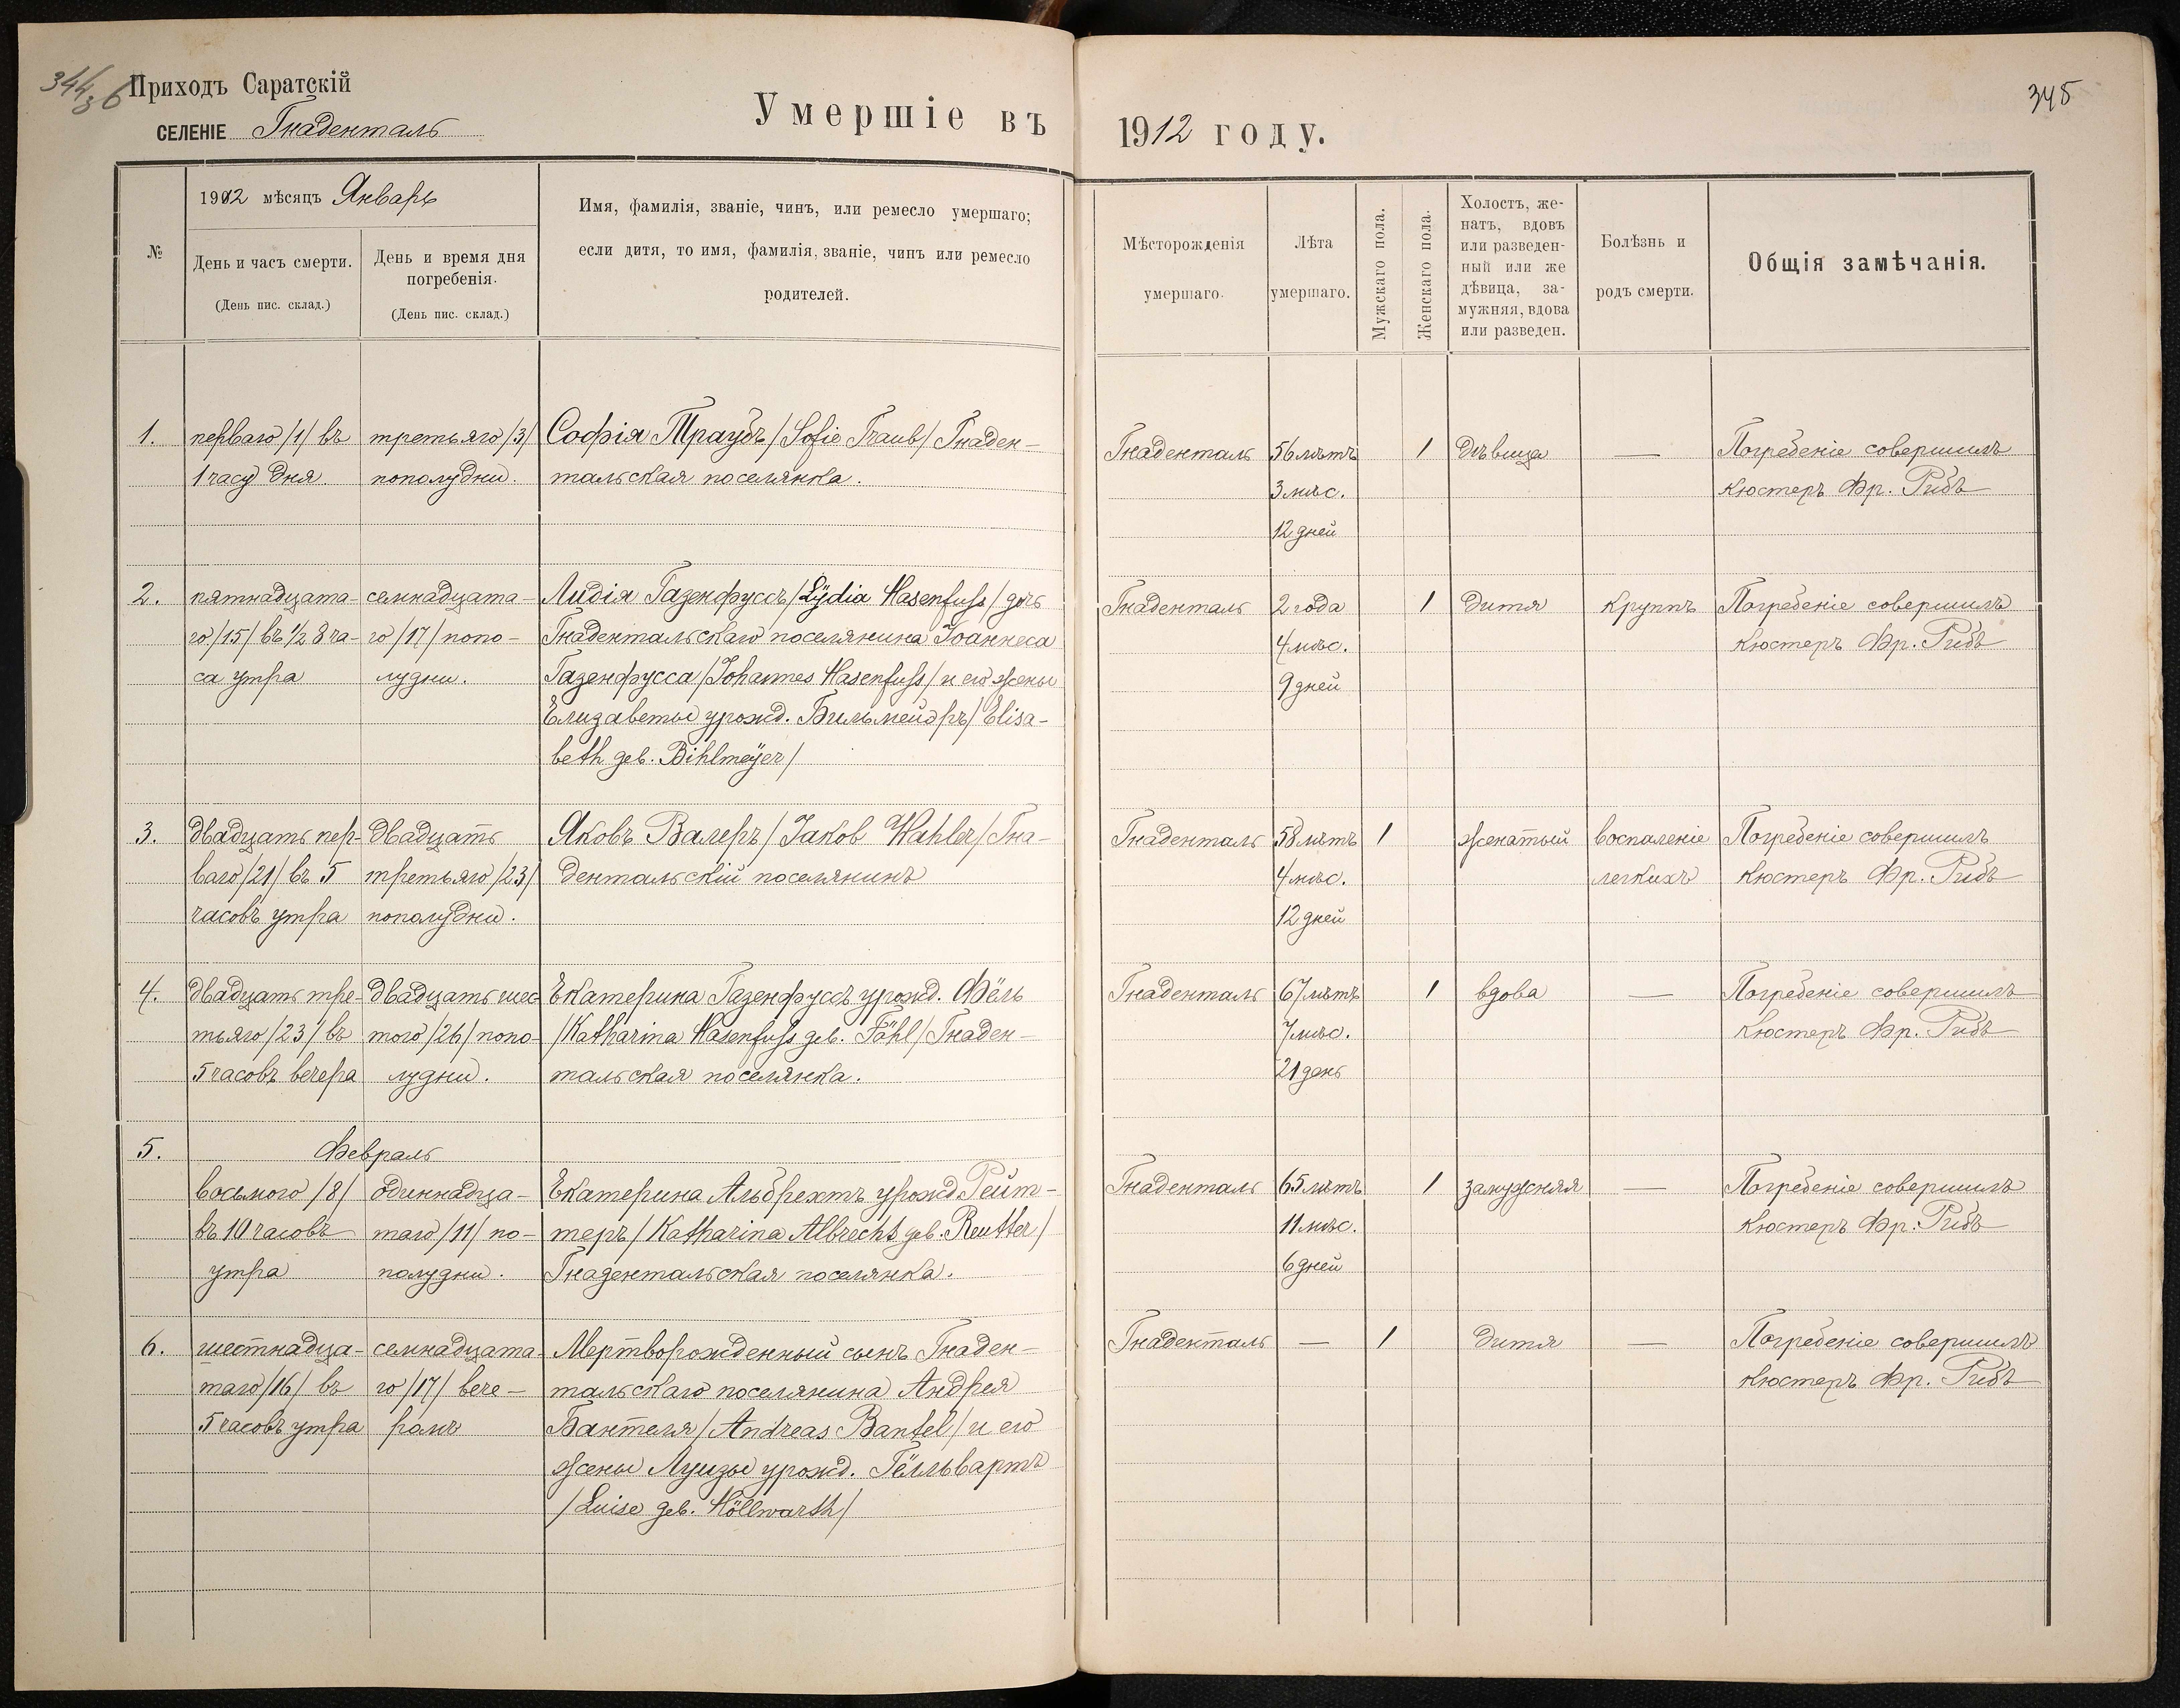 344
36
Приходъ Саратскій
СЕЛЕНІЕ Гнаденталь
Умершіе въ
№
1912 мѣсяцъ Январь
День и часъ смерти.
(День пис. склад.)
День и время дня
погребенія.
(День пис. склад.)
Имя, фамилія, званіе, чинъ, или ремесло умершаго;
если дитя, то имя, фамилія, званіе, чинъ или ремесло
родителей.
1. перваго /1/ въ третьяго /3/ Софія Траубъ /Sofie Traub/ Гнаден-
1 часу дня. пополудни. тальская поселянка.
2. пятнадцата- семнадцата- Лидія Газенфуссъ /Lÿdia Hasenfuß/ дочь
го /15/ въ 1/2 8 ча- го /17/ попо- Гнадентальскаго поселянина Іоаннеса
са утра лудни. Газенфусса /Johannes Hasenfuß/ и его жены
Елизаветы урожд. Бильмейэръ /Elisa-
beth geb. Bihlmeÿer/
3. двадцать пер- двадцать Яковъ Валеръ /Jakob Wahler/ Гна-
ваго /21/ въ 5 третьяго /23/ дентальскій поселянинъ
часовъ утра пополудни.
4. двадцать тре- двадцать шес- Екатерина Газенфуссъ урожд. Фёль
тьяго /23/ въ того /26/ попо- /Katharina Hasenfuß geb. Fähl/ Гнаден-
5 часовъ вечера лудни. тальская поселянка.
5. Февраль
восьмого /8/ одиннадца- Екатерина Альбрехтъ урожд. Рейт-
въ 10 часовъ таго /11/ по- теръ /Katharina Albrecht geb. Reutter/
утра полудни. Гнадентальская поселянка.
6. шестнадца- семнадцата- Мертворожденный сынъ Гнаден-
таго /16/ въ го /17/ вече- тальскаго поселянина Андрея
5 часовъ утра ромъ Бантеля /Andreas Bantel/ и его
жены Луизы урожд. Гёлльвартъ
/Luise geb. Höllwarth/
345
1912 году.
Мѣсторожденія
умершаго.
Лѣта
умершаго.
Мужскаго пола.
Женскаго пола.
Холостъ, же-
натъ, вдовъ
или разведен-
ный или же
дѣвица, за-
мужняя, вдова
или разведен.
Болѣзнь и
родъ смерти.
Общія замѣчанія.
Гнаденталь 56 лѣтъ 1 дѣвица — Погребеніе совершилъ
3 мѣс. кюстеръ Фр. Рибъ
12 дней
Гнаденталь 2 года 1 дитя крупъ Погребеніе совершилъ
4 мѣс. кюстеръ Фр. Рибъ
9 дней
Гнаденталь 58 лѣтъ 1 женатый воспаленіе Погребеніе совершилъ
4 мѣс. легкихъ кюстеръ Фр. Рибъ
12 дней
Гнаденталь 67 лѣтъ 1 вдова — Погребеніе совершилъ
7 мѣс. кюстеръ Фр. Рибъ
21 день
Гнаденталь 65 лѣтъ 1 замужняя — Погребеніе совершилъ
11 мѣс. кюстеръ Фр. Рибъ
6 дней
Гнаденталь — 1 дитя — Погребеніе совершилъ
кюстеръ Фр. Рибъ